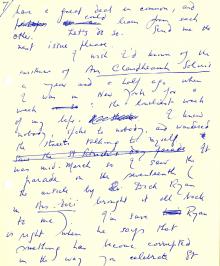 7/
have a great deal in common, and
could learn from each
other. Let's do so. Send me the
next issue please.
I wish I'd known of the
existence of An Claidheamh Soluis
a year and a half ago when
I was in New York for a
week - the loneliest week
of my life. I knew
nobody, spoke to nobody, and wandered
the streets talking to myself
saw the St Patrick's Day parade It
was mid-March so I saw the
parade on the seventeenth (
the article by Dick Ryan
in brought it all back
to me). I'm sure Ryan
is right when he says that
something has become corrupted
in the way you celebrate St